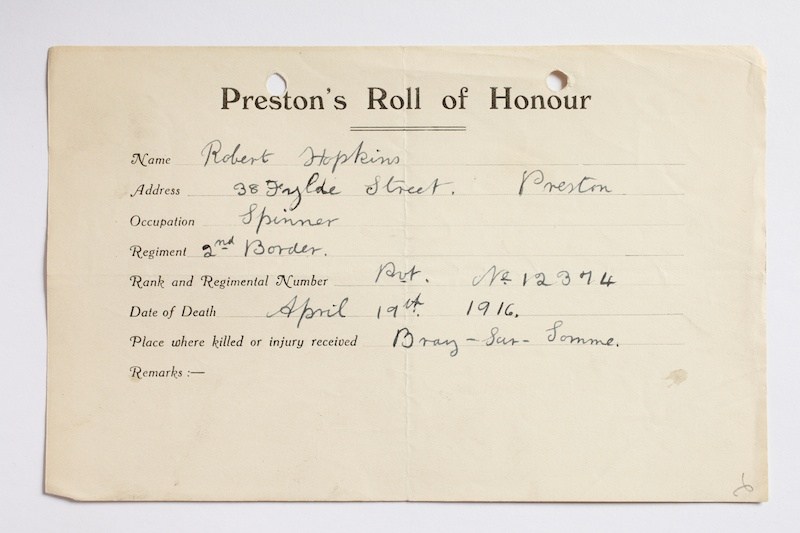 Preston's Roll of Honour
Name Robert Hopkins
Address 38 Fylde Street. Preston
Occupation Spinner
Regiment 2nd Border.
Rank and Regimental Number Pvt. No 12374
Date of Death April 19th. 1916.
Place where killed or injury received Bray-Sur-Somme.
Remarks :—